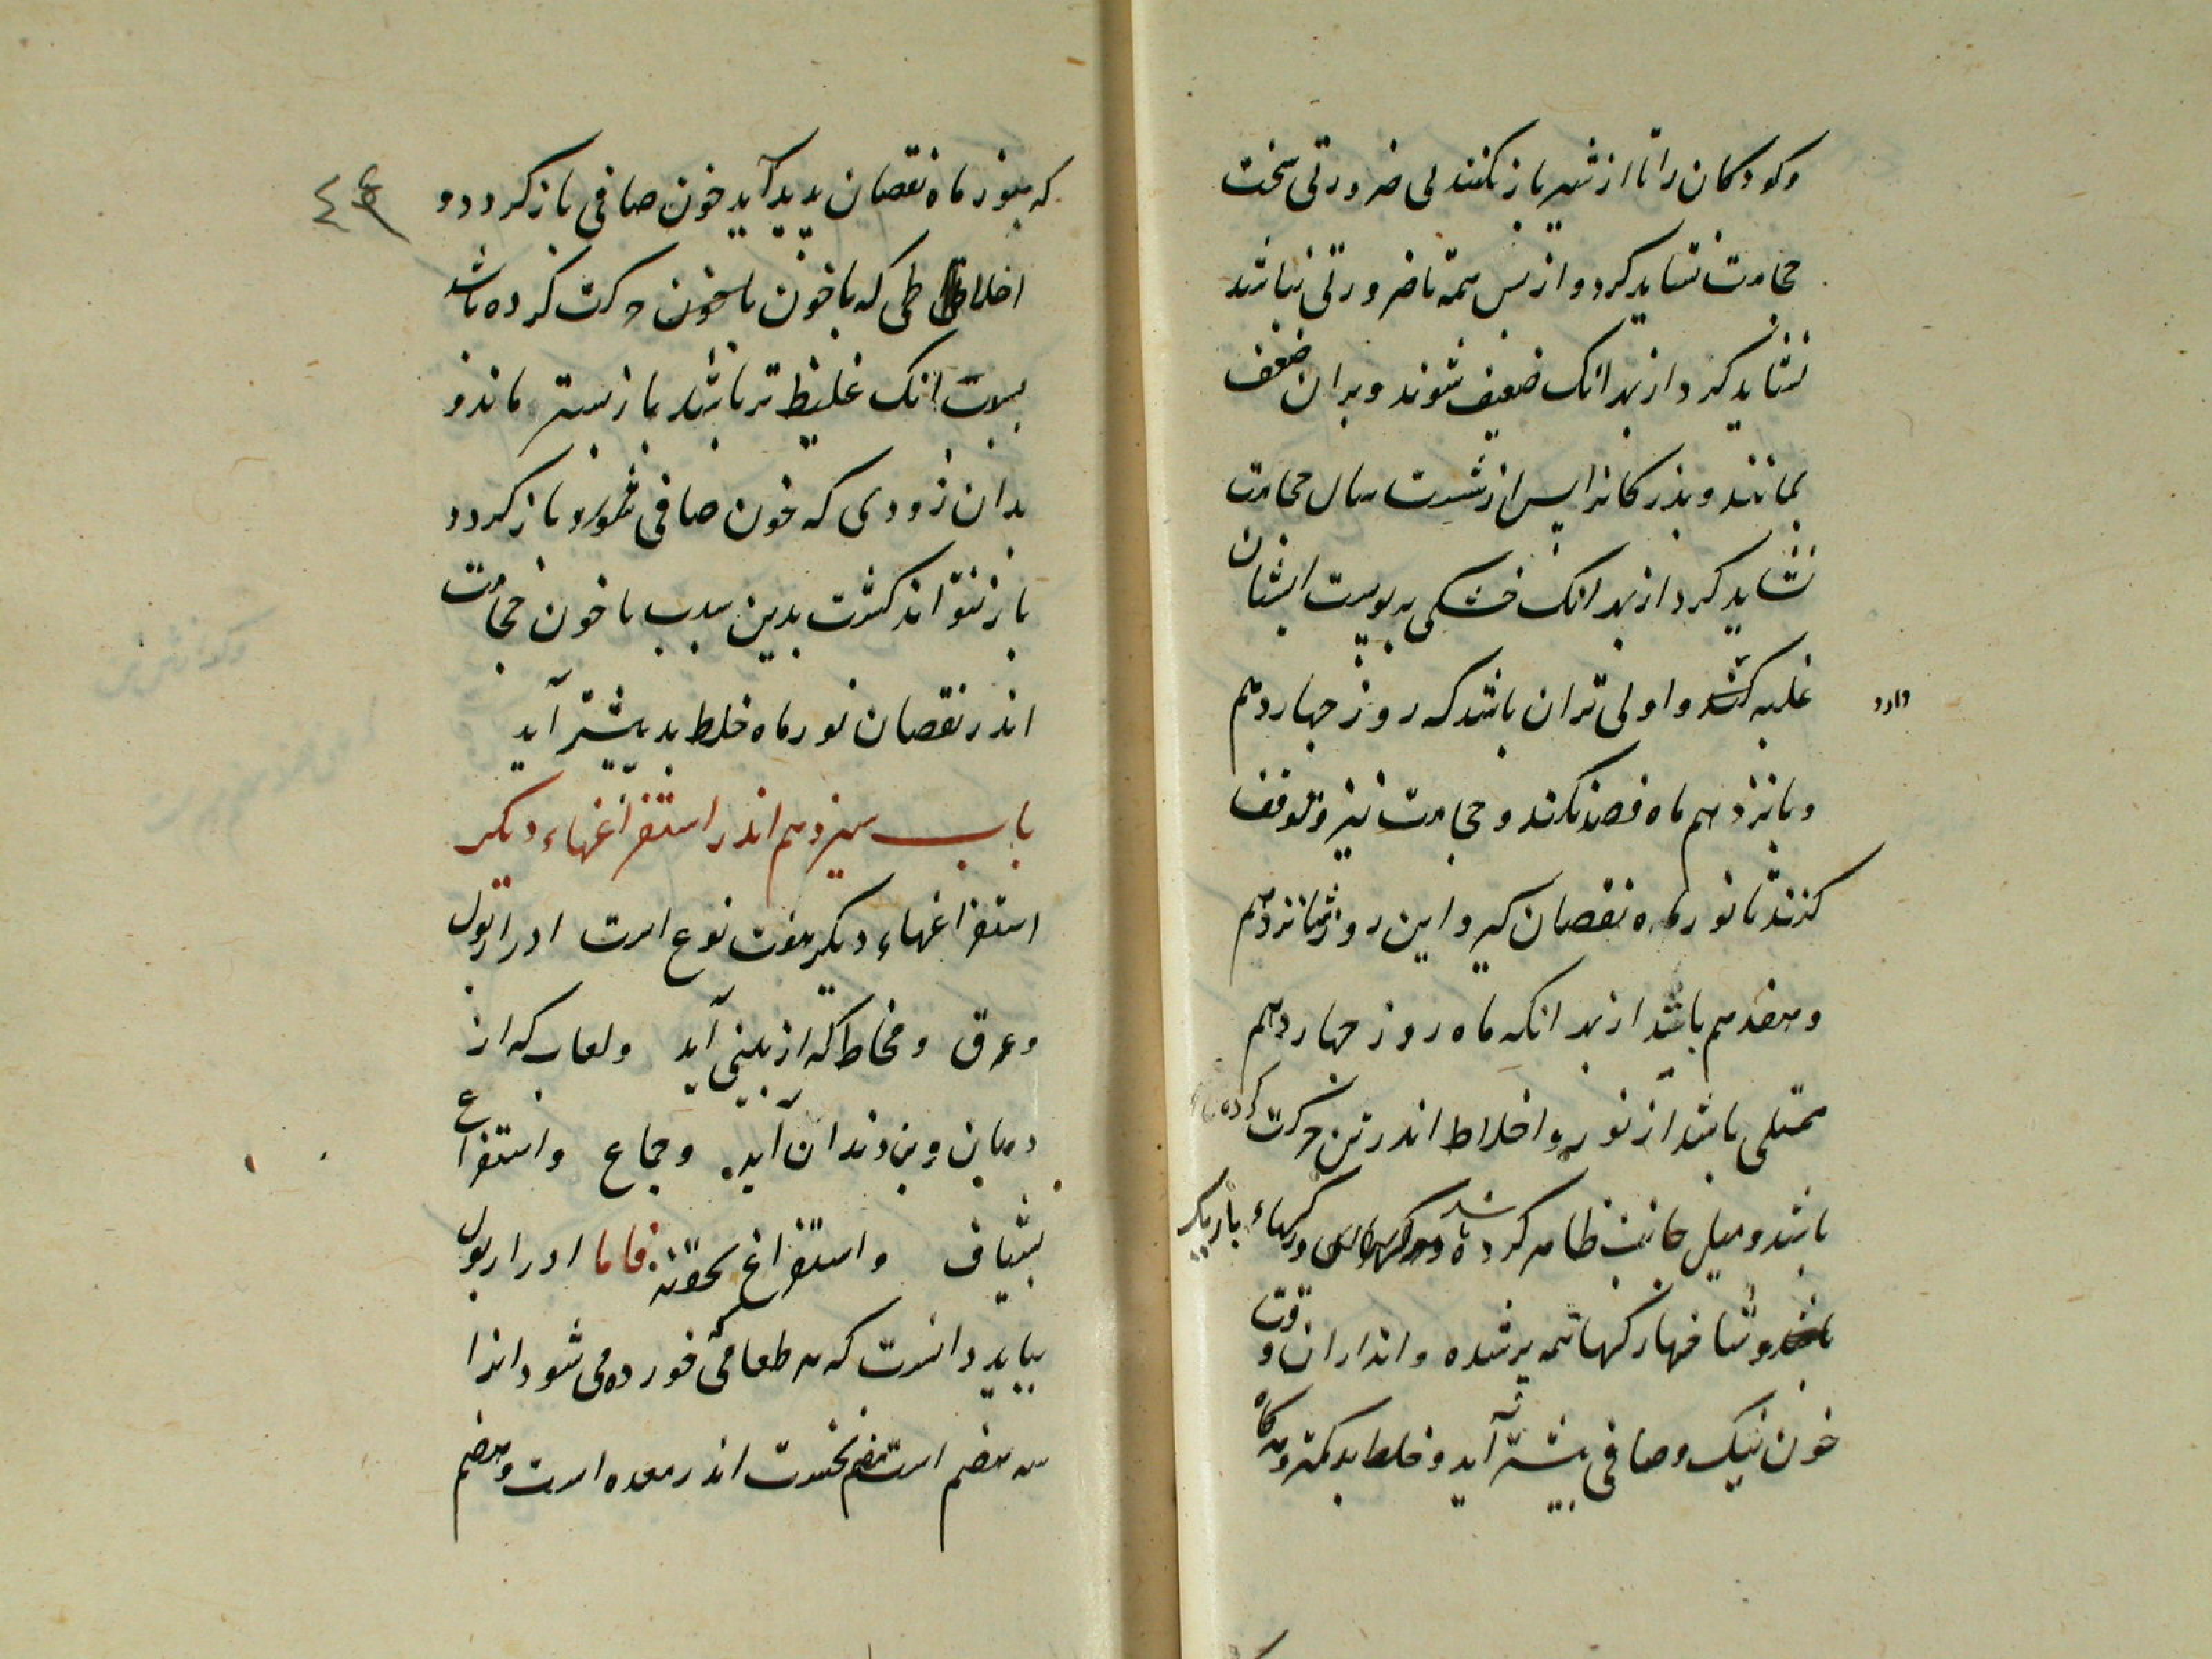 وکودکان را تا از شیر باز نکنند بی ضرورتی سخت
حجامت نشاید کرد و از پس همه تا ضرورتی نباشد
نشاید کرد از بهر انک ضعیف شوند و بران ضعف
بمانند و بزرکانرا پس از شست سال حجامت
نشاید کرد از بهر انک خشکی بر پوست ایشان
غلبه کند و اولی تر ان باشد که روز چهاردهم
دارد
و پانزدهم ماه فصد نکند و حجامت نیز و توقف
کنند تا نور ماه نقصان کیرد این روز شانزدهم
و هفدهم باشد از بهر انکه ماه روز چهاردهم
ممتلی باشد از نور و اخلاط اندر تن حرکت کرده
باشد و میل جانب ظاهر کرده باشد و رکهاء باریک
و شاخهاء رکها همه پر شده و اندر ان وقت
خون نیک و صافی بیشتر آید و خلط بد کمتر و هرکاه
٤٤
که بنور ماه نقصان پدید آید خون صافی باز کردد و
اخلاطی که با خون حرکت کرده باشد
بسبب انک غلیظ تر باشد باز پستر ماند و
بدان زودی که خون صافی باز کردد
باز نتواند کشت بدین سبب با خون حجامت
اندر نقصان نور ماه خلط بد بیشتر آید
باب سیزدهم اندر استفراغهاء دیکر
استفراغهاء دیکر هفت نوع است ادرار بول
وعرق و مخاط که از بینی آید ولعاب که از
دهان و بن دندان آید وجماع واستفراغ
بشیاف واستفراغ بحقنه فاما ادرار بول
بباید دانست که هر طعامی که خورده می شود انرا
سه هضم است هضم نخست اندر معده است و هضم